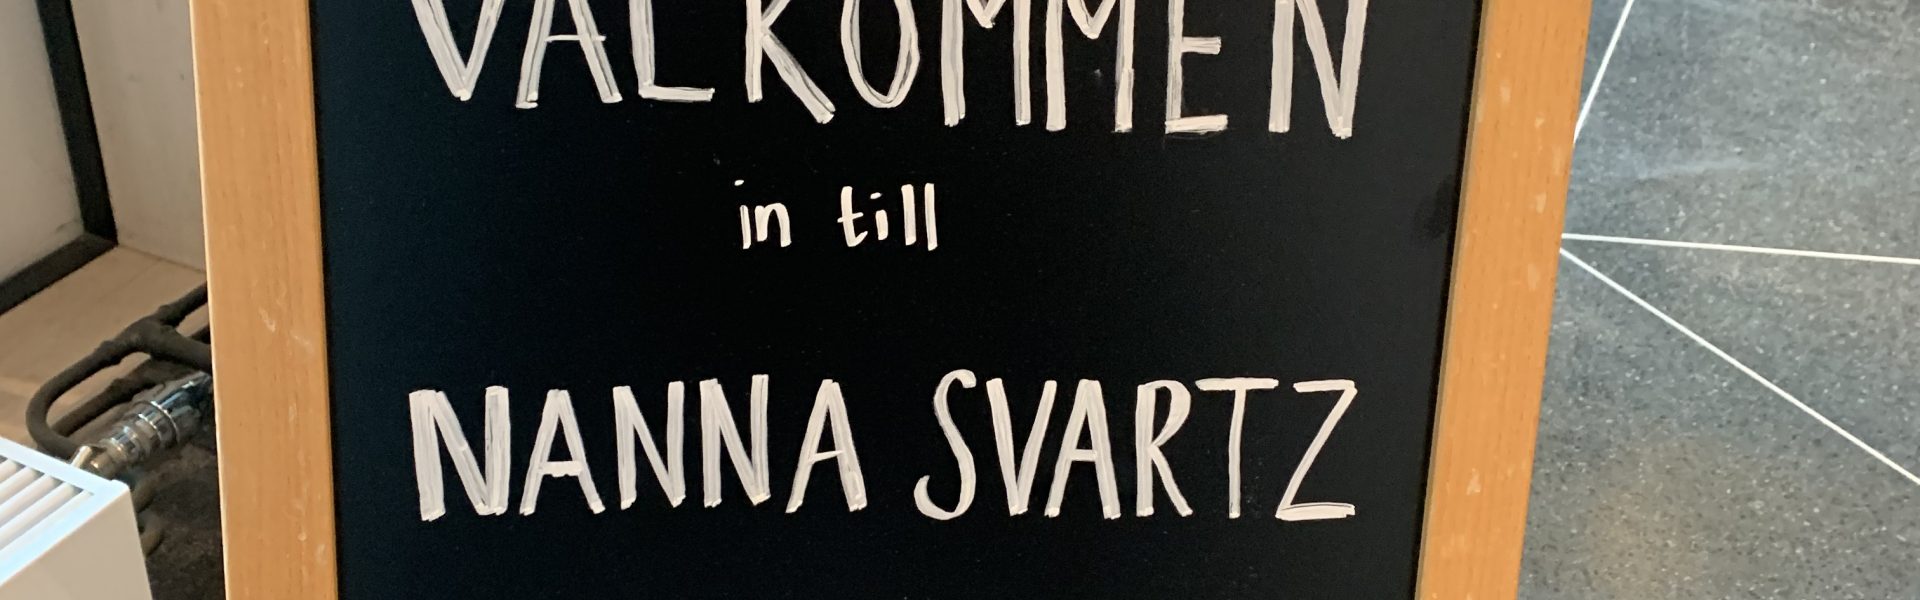 VÄLKOMMEN
in till
NANNA SVARTZ